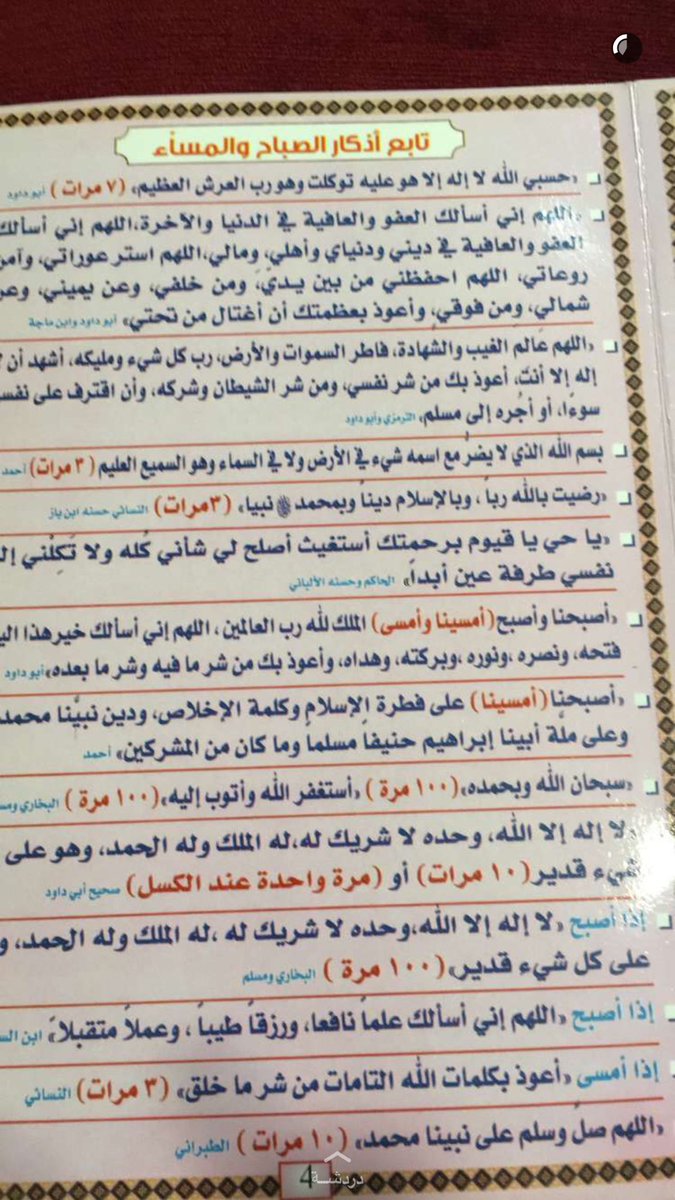 تابع أذكار الصباح والمساء
«حسبي الله لا إله إلا هو عليه توكلت وهو رب العرش العظيم» (٧ مرات) أبو داود
«اللهم إني أسألك العفو والعافية في الدنيا والآخرة،اللهم إني أسألك
العفو والعافية في ديني ودنياي وأهلي، ومالي،اللهم استر عوراتي، وآمن
روعاتي، اللهم احفظني من بين يدي، ومن خلفي، وعن يميني، وعن
شمالي، ومن فوقي، وأعوذ بعظمتك أن أغتال من تحتي» أبو داود وابن ماجة
«اللهم عالم الغيب والشهادة، فاطر السموات والأرض، رب كل شيء ومليكه، أشهد أن
إله إلا أنت، أعوذ بك من شر نفسي، ومن شر الشيطان وشركه، وأن اقترف على
سوءًا، أو أجُره إلى مسلم» الترمزي وأبو داود
بسم الله الذي لا يضرُّ مع اسمه شيء في الأرض ولا في السماء وهو السميع العليم (٣ مرات) أحمد
«رضيت بالله رباً ، وبالإسلام ديناً وبمحمد ﷺ نبيا» (٣مرات) النسائي حسنه ابن باز
«يا حي يا قيوم برحمتك أستغيث أصلح لي شأني كُله ولا تَكِلْني
نفسي طرفة عين أبداً» الحاكم وحسنه الألباني
«أصبحنا وأصبح(أمسينا وأمسى) الملك لله رب العالمين ، اللهم إني أسألك خير هذا
فتحه، ونصره ،ونوره ،وبركته، وهداه، وأعوذ بك من شر ما فيه وشر ما بعده»أبو داود
«أصبحنا(أمسينا) على فطرة الإسلام وكلمة الإخلاص، ودين نبيَّنا محمد
وعلى ملَّة أبينا إبراهيم حنيفاً مسلماً وما كان من المشركين» أحمد
«سبحان الله وبحمده»(١٠٠ مرة) «أستغفر الله وأتوب إليه»(١٠٠ مرة) البخاري
«لا إله إلا الله، وحده لا شريك له،له الملك وله الحمد، وهو على
شيء قدير(١٠ مرات) أو (مرة واحدة عند الكسل) صحيح أبي داود
إذا أصبح «لا إله إلا الله،وحده لا شريك له ،له الملك وله الحمد،
على كل شيء قدير»(١٠٠ مرة) البخاري ومسلم
إذا أصبح «اللهم إني أسألك علماً نافعا، ورزقاً طيباً ، وعملاً متقبلاً» ابن
إذا أمسى «أعوذ بكلمات الله التامات من شر ما خلق» (٣ مرات) النسائي
«اللهم صل وسلم على نبينا محمد» (١٠ مرات) الطبراني
4
دردشـة